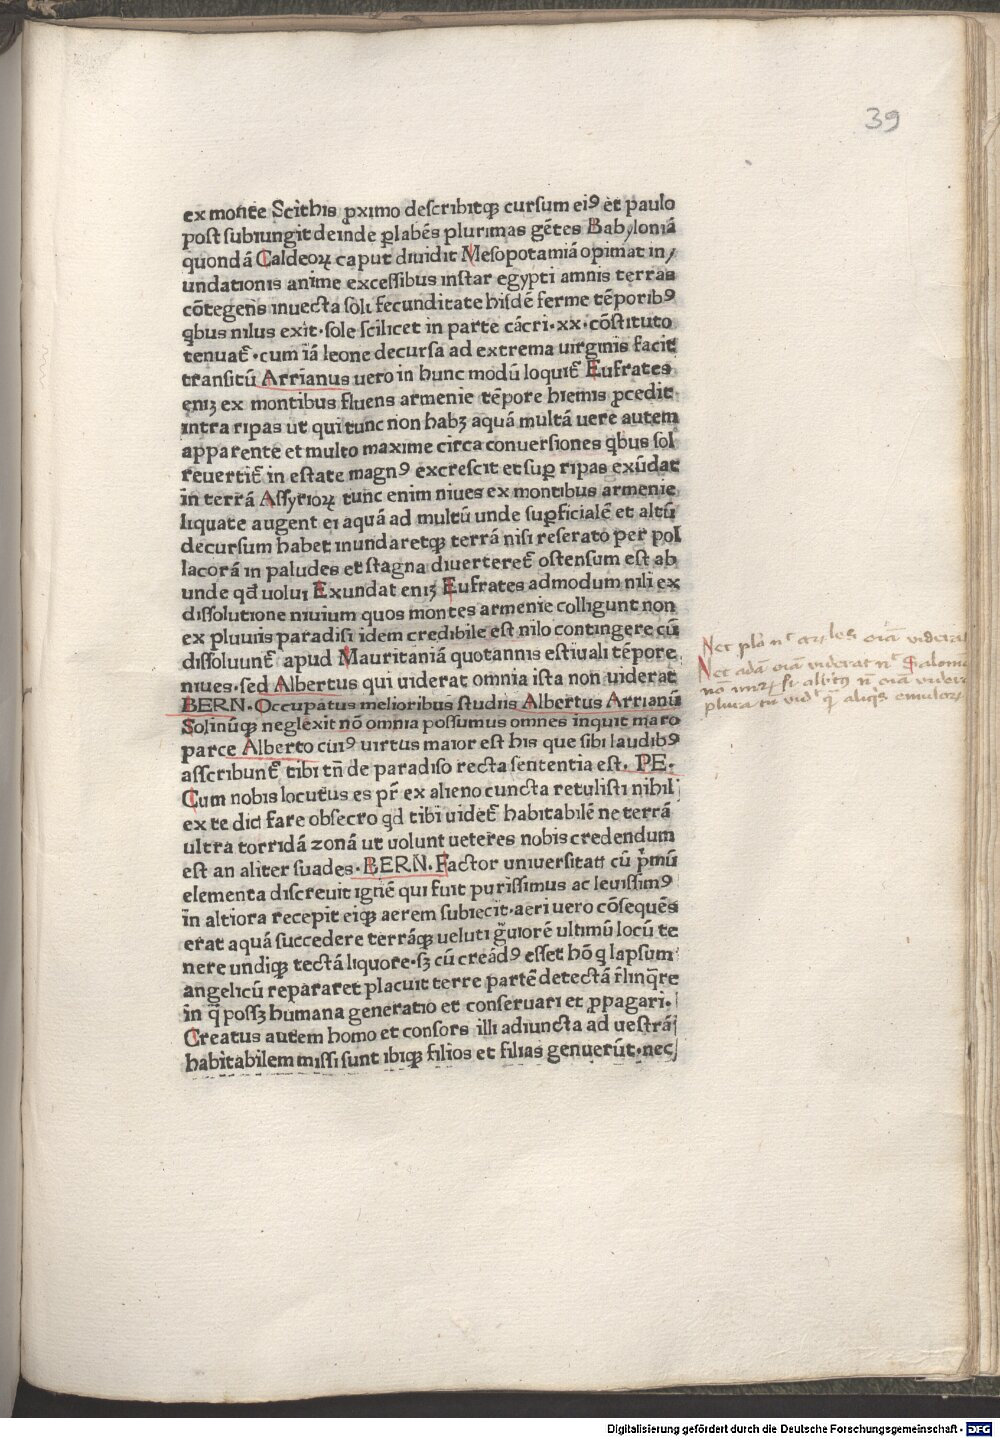 39
ex monte Scithis ꝓximo describitqꝫ cursum eiꝰ et paulo
post subiungit deinde ꝑ labēs plurimas gētes Babyloniā
quondā Caldeoꝝ caput diuidit Mesopotamiā opimat in/
undationis anime excessibus instar egypti amnis terras
cōtegens inuecta soli fecunditate hisdē ferme tēporibꝰ
qbus nilus exit·sole scilicet in parte cācri·xx·cōstituto
tenuat̄·cum iā leone decursa ad extrema uirginis facit
transitū Arrianus uero in hunc modū loquit̄ Eufrates
enīꝫ ex montibus fluens armenie tēpore hiemis ꝓcedit
intra ripas ut qui tunc non habꝫ aquā multā uere autem
apparente et multo maxime circa conuersiones qbus sol
reuertit̄ in estate magnꝰ excrescit et suꝑ ripas exūdat
in terrā Assyrioꝝ tunc enim niues ex montibus armenie
liquate augent ei aquā ad multū unde suꝑficialē et altū
decursum habet inundaretqꝫ terrā nisi reserato per pol
lacorā in paludes et stagna diuerteret̄ ostensum est ab
unde qđ uolui Exundat enīꝫ Eufrates admodum nili ex
dissolutione niuium quos montes armenie colligunt non
ex pluuiis paradisi idem credibile est nilo contingere cū
dissoluunt̄ apud Mauritaniā quotannis estiuali tēpore
niues·sed Albertus qui uiderat omnia ista non uiderat
BERN·Occupatus melioribus studiis Albertus Arrianū
Solinūqꝫ neglexit nō omnia possumus omnes inquit maro
parce Alberto cuiꝰ uirtus maior est his que sibi laudibꝰ
asscribunt̄ tibi tn̄ de paradiso recta sententia est· PE·
Cum nobis locutus es pr̄ ex alieno cuncta retulisti nihil
ex te dic fare obsecro qd tibi uidet̄ habitabilē ne terrā
ultra torridā zonā ut uolunt ueteres nobis credendum
est an aliter suades·BERN·Factor uniuersitati cū p̄mū
elementa discreuit ignē qui fuit purissimus ac leuissimꝰ
in altiora recepit eiqꝫ aerem subiecit·aeri uero cōsequēs
erat aquā succedere terrāqꝫ ueluti g̃uiorē ultimū locū te
nere undiqꝫ tectā liquore·sꝫ cū creādꝰ esset hō q lapsum
angelicū repararet placuit terre partē detectā r̄linq̄re
in q̄ possꝫ humana generatio et conseruari et ꝓpagari·
Creatus autem homo et consors illi adiuncta ad uestrā
habitabilem missi sunt ibiqꝫ filios et filias genuerūt·nec
Nec oīa
Nec adā oīa viderat nec Salomō
plura